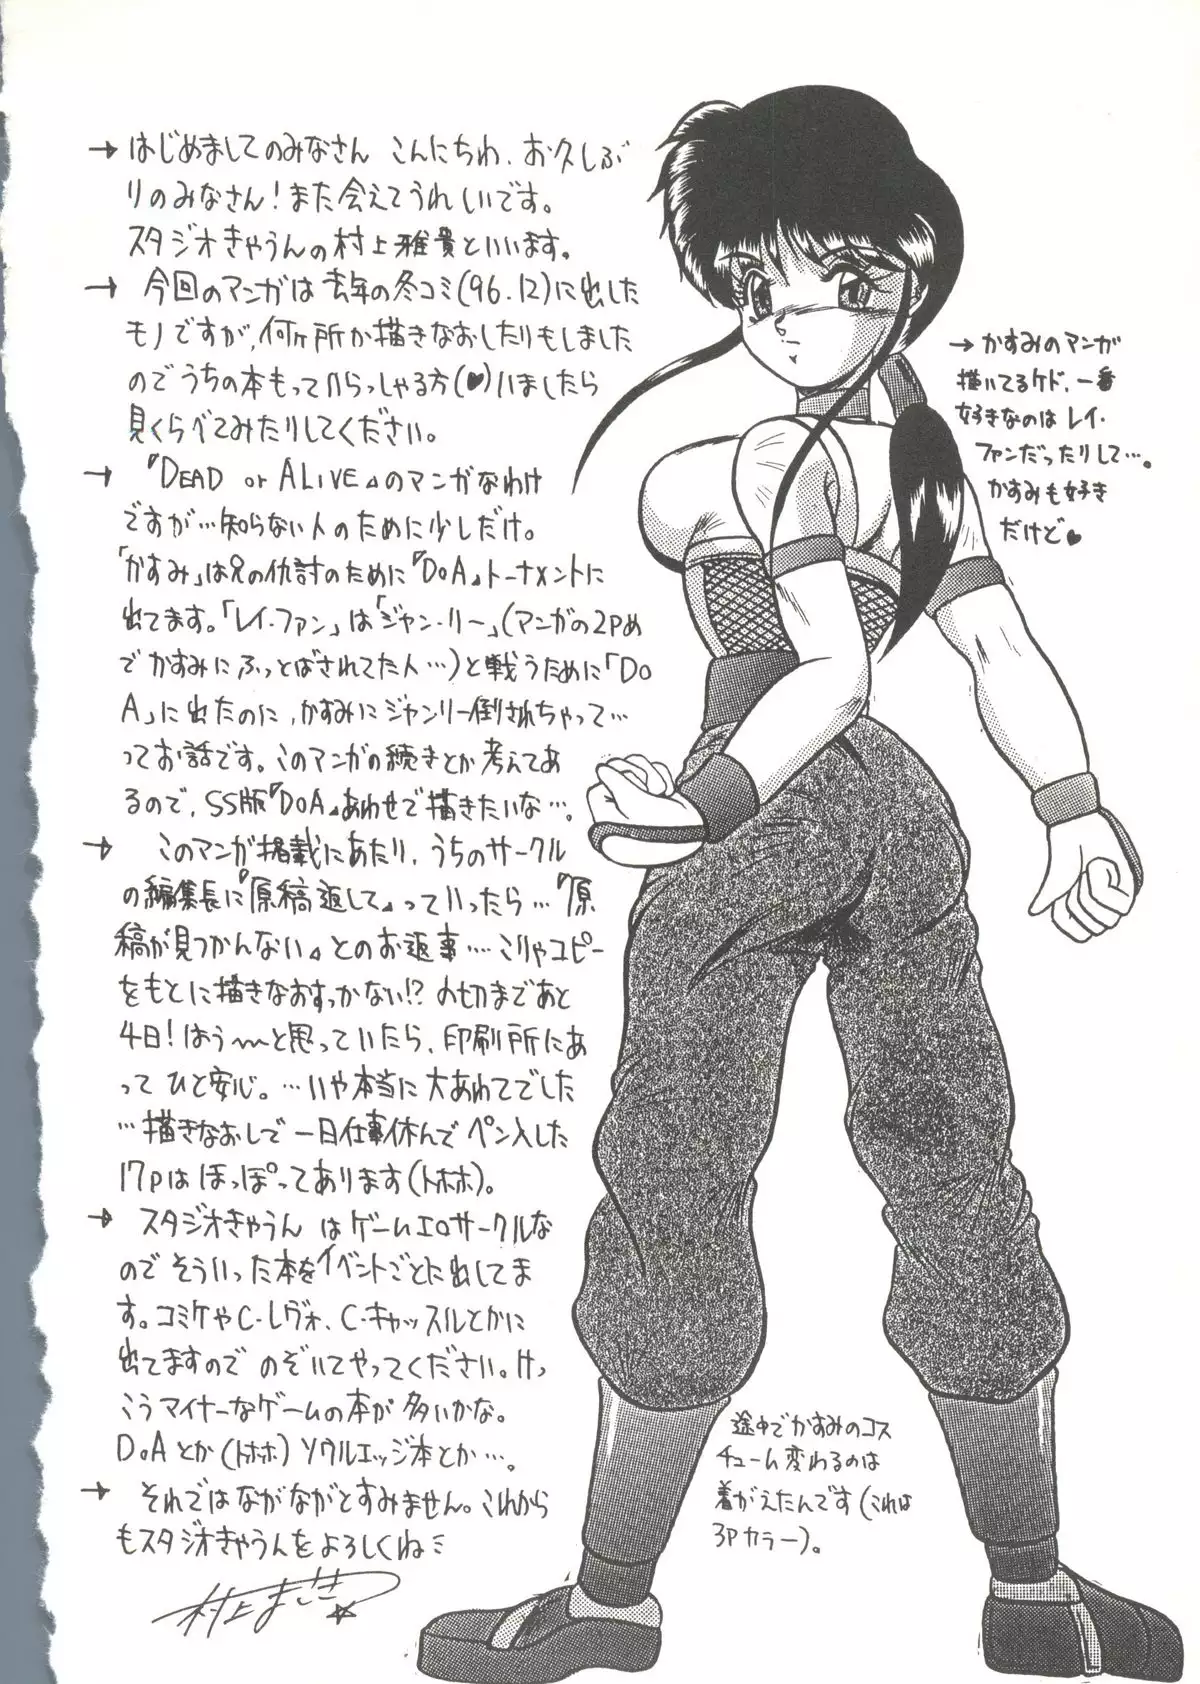 →はじめましてのみなさん こんにちわ、お久しぶ
りのみなさん!また会えてうれしいです。
スタジオきゃうんの村上雅貴といいます。
→ 今回のマンガは去年の冬コミ(96.12)に出した
モノですが、何ヶ所か描きなおしたりもしました
のでうちの本もっていらっしゃる方(♥)いましたら
見くらべてみたりしてください。
→ 『DEAD or ALIVE』のマンガなわけ
ですが…知らない人のために少しだけ。
「かすみ」は兄の仇討のために『DoA』トーナメントに
出てます。「レイ・ファン」は「ジャン・リー」(マンガの2Pめ
でかすみにふっとばされてた人…)と戦うために「Do
A」に出たのに、かすみにジャンリー倒されちゃって…
ってお話です。このマンガの続きとか考えてあ
るので、SS版『DoA』あわせで描きたいな…。
→ このマンガ掲載にあたり、うちのサークル
の編集長に『原稿返して』っていったら…『原
稿が見つかんない』とのお返事…こりゃコピー
をもとに描きなおすっかない!?〆切まであと
4日!はう〜と思っていたら、印刷所にあ
って ひと安心。…いや本当に大あわてでした
…描きなおしで一日仕事休んでペン入した
17pはほっぽってあります(トホホ)。
→ スタジオきゃうん はゲームエロサークルな
のでそういった本をイベントごとに出してま
す。コミケやC・レヴォ、C・キャッスルとかに
出てますので のぞいてやってください。けっ
こうマイナーなゲームの本が多いかな。
DoAとか(トホホ)ソウルエッジ本とか…。
→ それではながながとすみません。これから
もスタジオきゃうんをよろしくね
村上まさき☆
→かすみのマンガ
描いてるケド、一番
好きなのはレイ・
ファンだったりして…。
かすみも好き
だけど♥
途中でかすみのコス
チューム変わるのは
着がえたんです(これは
3Pカラー)。